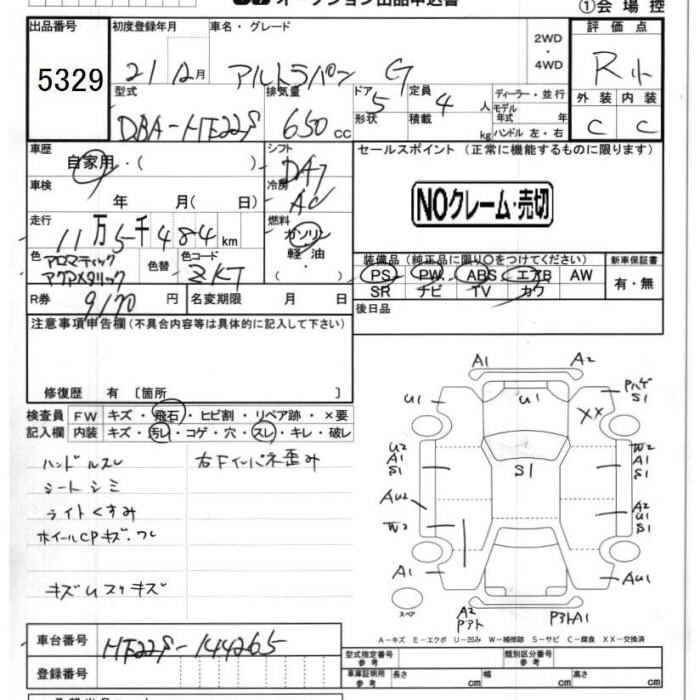 ①会場控
出品番号
5329
初度登録年月
21 12月
車名・グレード
アルトラパン G
2WD
・
4WD
評価点
R小
外装 内装
C C
型式
DBA-HE22S
排気量
650cc
ドア 5
形状
定員 4人
積載 kg
ディーラー・並行
モデル年式 年
ハンドル 左・右
車歴
自家用・( )
シフト
DA7
セールスポイント (正常に機能するものに限ります)
NOクレーム・売切
車検
年 月( 日)
冷房
AC
走行
11万5千484km
燃料
ガソリン
軽・油
・( )
色
アロマティック
アクアメタリック
色替
色コード
ZKT
装備品 (純正品に限り○をつけてください)
PS PW ABS エアB AW
SR ナビ TV カワ
新車保証書
有・無
R券
9170円
名変期限 月 日
後日品
注意事項申告欄(不具合内容等は具体的に記入して下さい)
修復歴 有 〔箇所 〕
検査員
記入欄
FW キズ・飛石・ヒビ割・リペア跡・×要
内装 キズ・汚レ・コゲ・穴・スレ・キレ・破レ
ハンドルスレ
右Fインパネ歪み
シートシミ
ライトくすみ
ホイールCPキズ・ワレ
A1
A2
U1
U1
S1
XX
U2
A1
S1
S1
W2
A1
S1
AU2
A2
U1
S1
W2
A1
AU1
スペア
A2
A1
A-キズ E-エクボ U-凹み W-補修跡 S-サビ C-腐食 XX-交換済
車台番号
HE22S-144265
登録番号
型式指定番号
参考
類別区分番号
参考
車庫証明用
参考
長さ cm
幅 cm
高さ cm